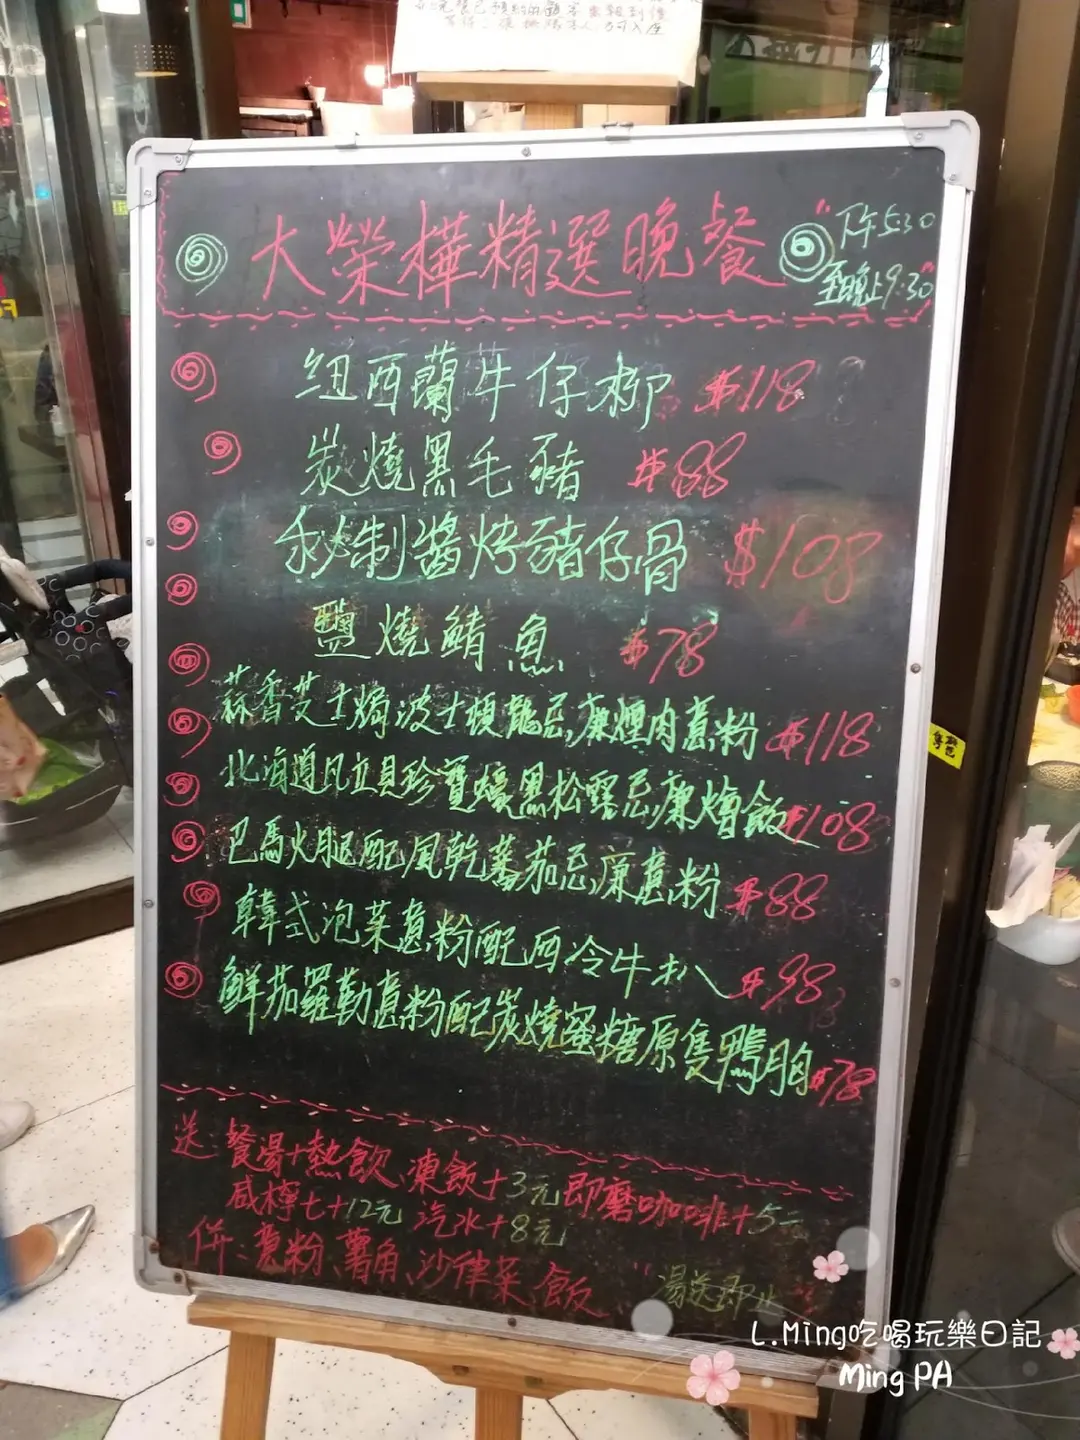 大榮樺精選晚餐
"下午5:30
至晚上9:30"
紐西蘭牛仔柳 $118
炭燒黑毛豬 $88
秘制醬烤豬仔骨 $108
鹽燒鯖魚 $78
蒜香芝士焗波士頓龍忌廉煙肉意粉 $118
北海道帆立貝珍寶蠔黑松露忌廉燴飯 $108
巴馬火腿配風乾蕃茄忌廉意粉 $88
韓式泡菜意粉配西冷牛扒 $98
鮮茄羅勒意粉配炭燒蜜糖原隻鴨胸 $78
送:餐湯+熱飲、凍飲+3元即磨咖啡+5元
咸檸七+12元 汽水+8元
併:意粉、薯角、沙律菜 飯 "湯送即止"
L.Ming吃喝玩樂日記
Ming PA